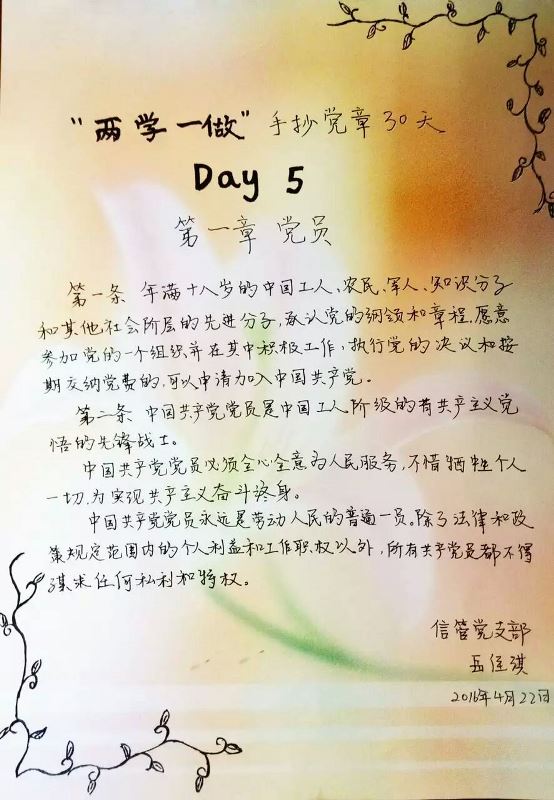 “两学一做”手抄党章30天
Day 5
第一章 党员
第一条 年满十八岁的中国工人、农民、军人、知识分子
和其他社会阶层的先进分子,承认党的纲领和章程,愿意
参加党的一个组织并在其中积极工作,执行党的决议和按
期交纳党费的,可以申请加入中国共产党。
第二条 中国共产党党员是中国工人阶级的有共产主义觉
悟的先锋战士。
中国共产党党员必须全心全意为人民服务,不惜牺牲个人
一切,为实现共产主义奋斗终身。
中国共产党党员永远是劳动人民的普通一员。除了法律和政
策规定范围内的个人利益和工作职权以外,所有共产党员都不得
谋求任何私利和特权。
信管党支部
岳佳琪
2016年4月22日